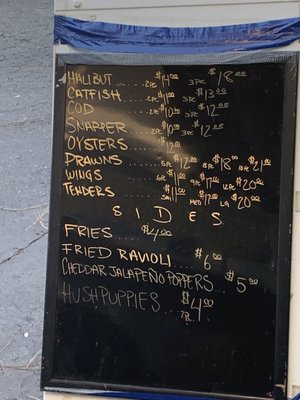 HALIBUT...... 2PC $14.00 3PC $18.00
CATFISH.... 2PC $11.00 3PC $13.00
COD ...... 2PC $10.00 3PC $12.00
SNAPPER....... 2PC $10.00 3PC $12.00
OYSTERS ..... $12.00
PRAWNS ...... $12.00 $18.00 $21.00
WINGS ..... 6PC $11.00 9PC $17.00 12PC $20.00
TENDERS ...... SM $11.00 MED $17.00 LG $20.00
SIDES
FRIES .... $4.00
FRIED RAVIOLI .... $6.00
CHEDDAR JALAPEÑO POPPERS.. $5.00
HUSHPUPPIES ... $4.00